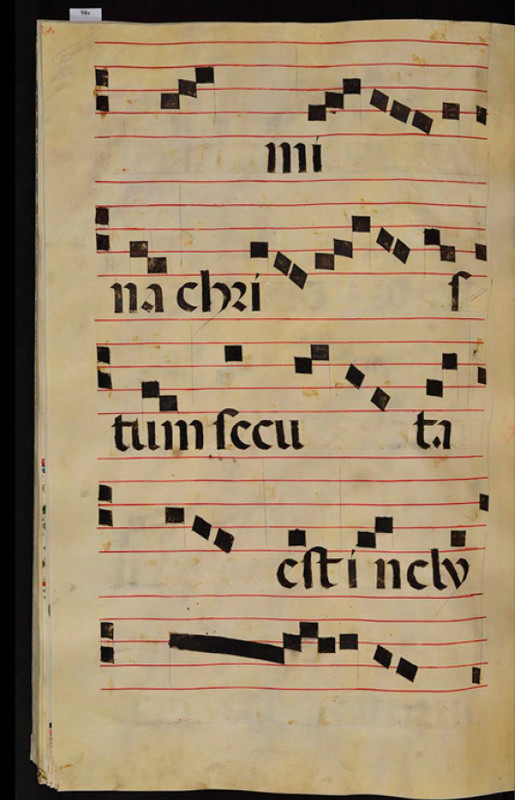 mi
na chri s
tum secu ta
est i nclv